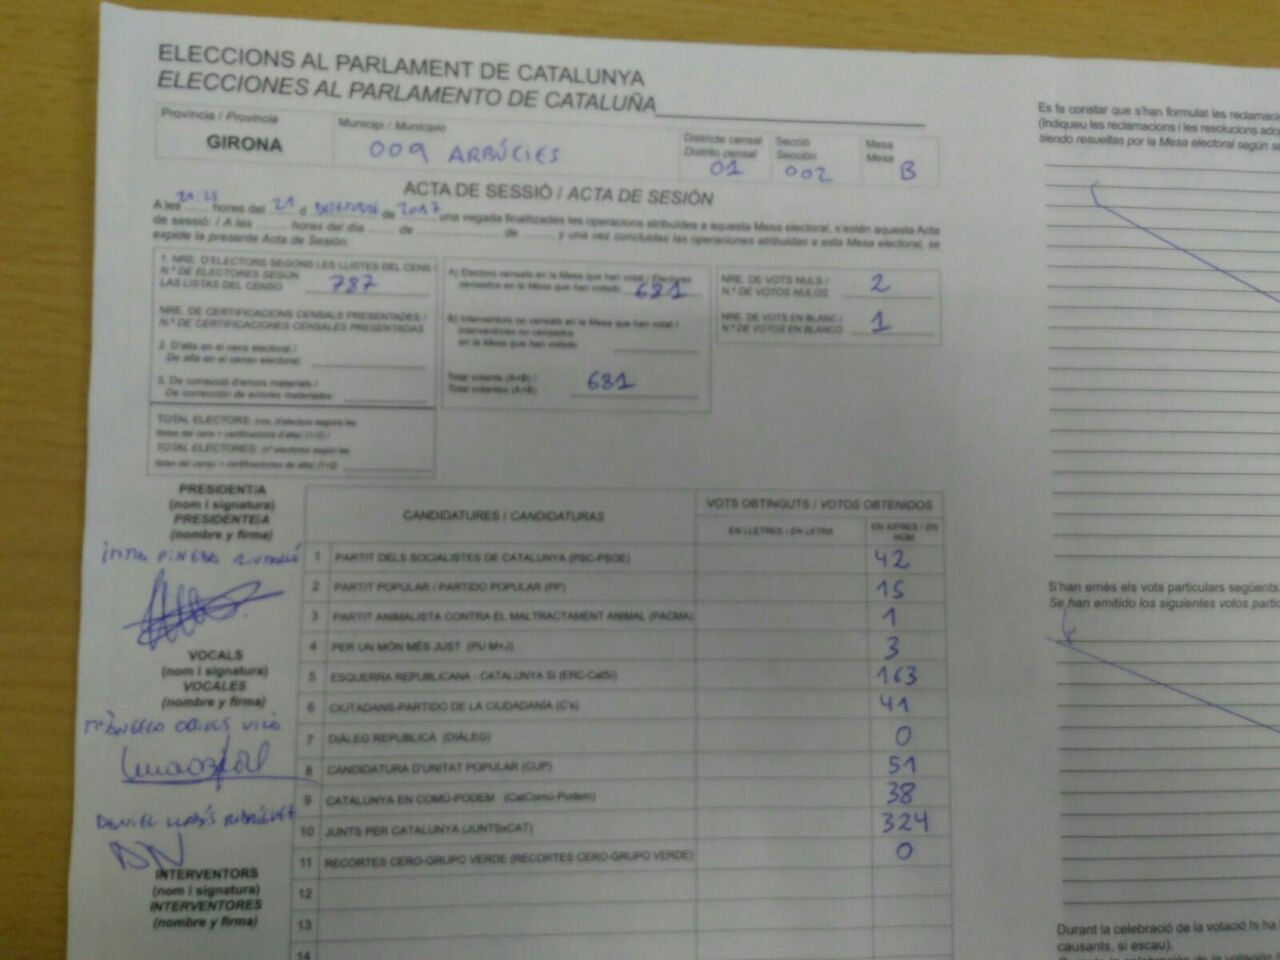 ELECCIONS AL PARLAMENT DE CATALUNYA
ELECCIONES AL PARLAMENTO DE CATALUÑA
Provincia / Provincia
GIRONA
Municipi / Municipio
009 ARBÚCIES
Districte censal
Distrito censal
01
Secció
Sección
002
Mesa
Mesa
B
ACTA DE SESSIÓ / ACTA DE SESIÓN
A les 21:25 hores del 21 d de 2017 una vegada finalitzades les operacions atribuïdes a aquesta Mesa electoral, s'estén aquesta Acta
de sessió: / A las horas del día de de y una vez concluidas las operaciones atribuidas a esta Mesa electoral, se
expide la presente Acta de Sesión:
1. NRE. D'ELECTORS SEGONS LES LLISTES DEL CENS /
N.º DE ELECTORES SEGÚN
LAS LISTAS DEL CENSO 787
NRE. DE CERTIFICACIONS CENSALS PRESENTADES /
N.º DE CERTIFICACIONES CENSALES PRESENTADAS
2. D'alta en el cens electoral /
De alta en el censo electoral:
3. De correcció d'errors materials /
De corrección de errores materiales:
TOTAL ELECTORS: (nre. d'electors segons les
llistes del cens + certificacions d'alta) (1+2) /
TOTAL ELECTORES: (nº electores según las
listas del censo + certificaciones de alta) (1+2)
A) Electors censats en la Mesa que han votat / Electores
censados en la Mesa que han votado 681
B) Interventors no censats en la Mesa que han votat /
Interventores no censados
en la Mesa que han votado
Total votants (A+B) /
Total votantes (A+B) 681
NRE. DE VOTS NULS /
N.º DE VOTOS NULOS 2
NRE. DE VOTS EN BLANC /
N.º DE VOTOS EN BLANCO 1
PRESIDENT/A
(nom i signatura)
PRESIDENTE/A
(nombre y firma)
VOCALS
(nom i signatura)
VOCALES
(nombre y firma)
INTERVENTORS
(nom i signatura)
INTERVENTORES
(nombre y firma)
CANDIDATURES / CANDIDATURAS
VOTS OBTINGUTS / VOTOS OBTENIDOS
EN LLETRES / EN LETRA
EN XIFRES / EN
NÚM.
1 PARTIT DELS SOCIALISTES DE CATALUNYA (PSC-PSOE) 42
2 PARTIT POPULAR / PARTIDO POPULAR (PP) 15
3 PARTIT ANIMALISTA CONTRA EL MALTRACTAMENT ANIMAL (PACMA) 1
4 PER UN MÓN MÉS JUST (PUM+J) 3
5 ESQUERRA REPUBLICANA - CATALUNYA SÍ (ERC-CatSí) 163
6 CIUTADANS-PARTIDO DE LA CIUDADANÍA (C's) 41
7 DIÀLEG REPUBLICÀ (DIÀLEG) 0
8 CANDIDATURA D'UNITAT POPULAR (CUP) 51
9 CATALUNYA EN COMÚ-PODEM (CatComú-Podem) 38
10 JUNTS PER CATALUNYA (JUNTSxCAT) 324
11 RECORTES CERO-GRUPO VERDE (RECORTES CERO-GRUPO VERDE) 0
12
13
14
Es fa constar que s'han formulat les
(Indiqueu les reclamacions i les resolucions
siendo resueltas por la Mesa electoral según
S'han emès els vots particulars següents
Se han emitido los siguientes votos
Durant la celebració de la votació hi ha
causants, si escau).